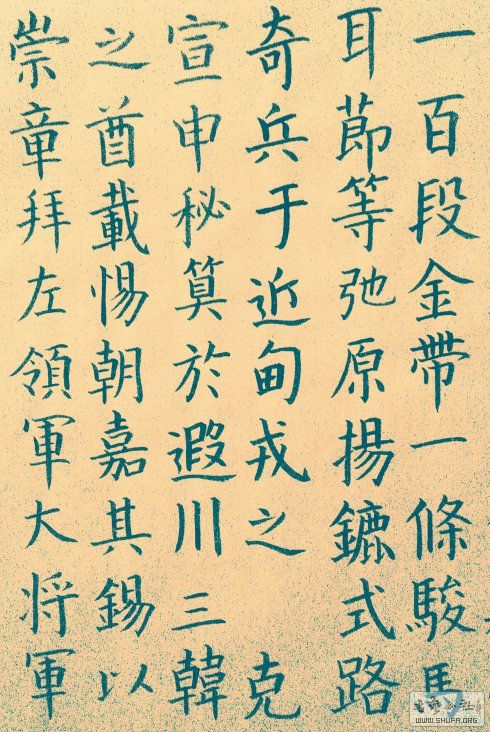 一百段金帶一條駿馬
耳節等弛原揚鑣式路
奇兵于近甸戎之克
宣申秘算於遐川三韓
之酋載惕朝嘉其錫以
崇章拜左領軍大将軍
WWW.SHUFA.ORG